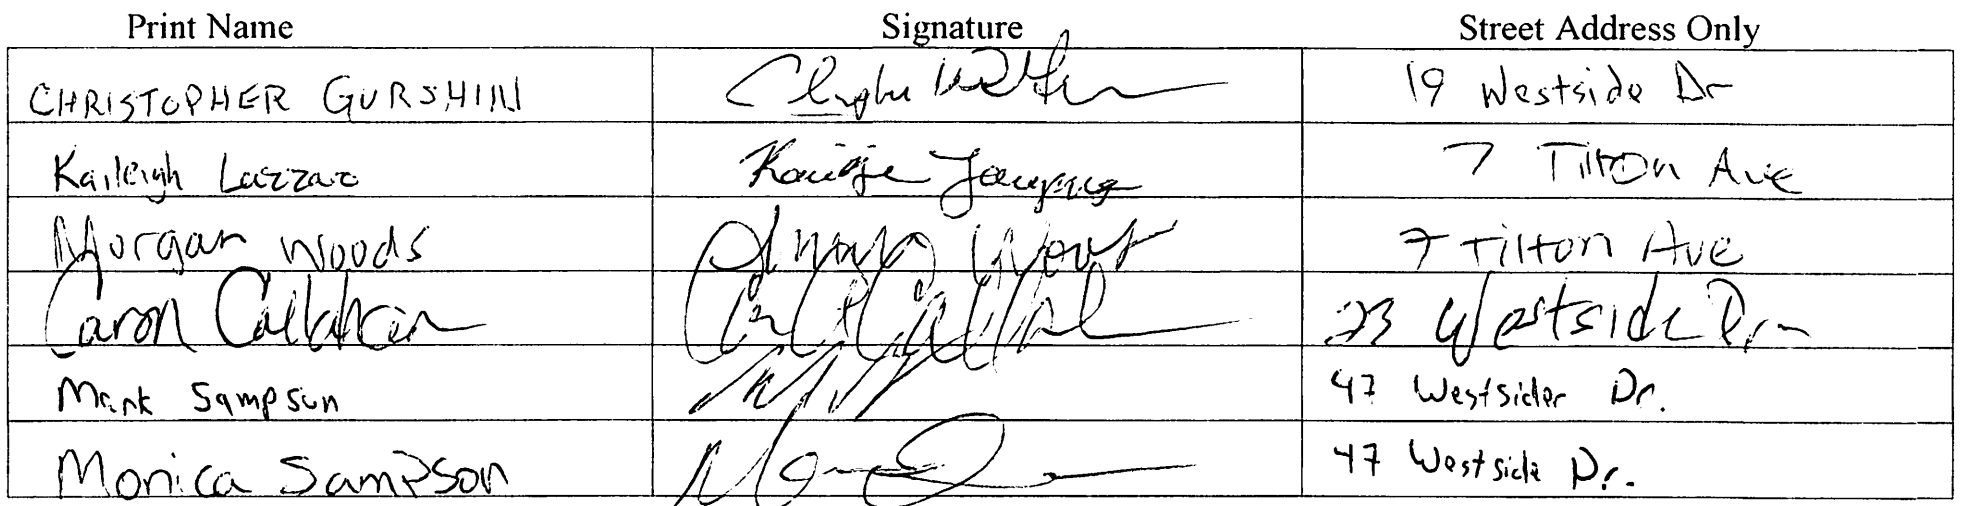 Print Name Signature Street Address Only
CHRISTOPHER GURSHIN 19 Westside Dr
Kaileigh Lazzaro 7 Tilton Ave
Morgan Woods 7 Tilton Ave
Caron Callahan 23 Westside Dr
Mark Sampson 47 Westsider Dr.
Monica Sampson 47 Westside Dr.